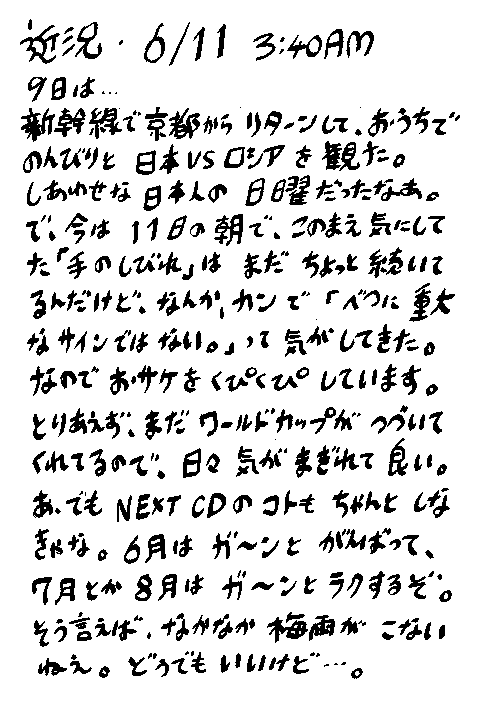 近況・6/11 3:40AM
9日は…
新幹線で京都からリターンして、おうちで
のんびりと 日本VSロシアを観た。
しあわせな日本人の 日曜だったなぁ。
で、今は 11日の朝で、このまえ気にして
た「手のしびれ」は まだ ちょっと続いて
るんだけど、なんか、カンで「べつに重大
なサインでは ない。」って 気がしてきた。
なので おサケをくぴくぴ しています。
とりあえず、まだ ワールドカップが つづいて
くれてるので、日々 気が まぎれて 良い。
あ、でも NEXT CDの コトも ちゃんと しな
きゃな。6月は ガ〜ンと がんばって、
7月とか 8月は ガ〜ンと ラクするぞ。
そう言えば、なかなか 梅雨が こない
ねぇ。どうでも いいけど…。